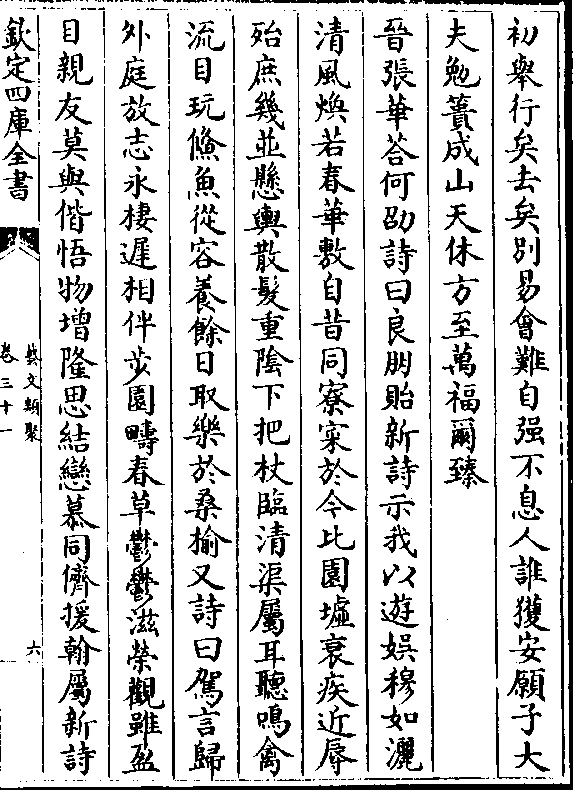 初舉行矣去矣別易會難自强不息人誰獲安願子大
夫勉簣成山天休方至萬福爾臻
晉張華荅何劭詩曰良朋貽新詩示我以遊娯穆如灑
清風煥若春華敷自昔同寮寀於今比園墟衰疾近辱
殆庶幾並懸輿散髮重陰下把杖臨清渠屬耳聽鳴禽
流目玩鯈魚從容養餘日取樂於桑揄又詩曰駕言歸
外庭放志永棲遲相伴步園疇春草鬱鬱滋榮觀雖盈
目親友莫與偕悟物增隆思結戀慕同儕援翰屬新詩
欽定四庫全書
藝文類聚
卷三十一
六